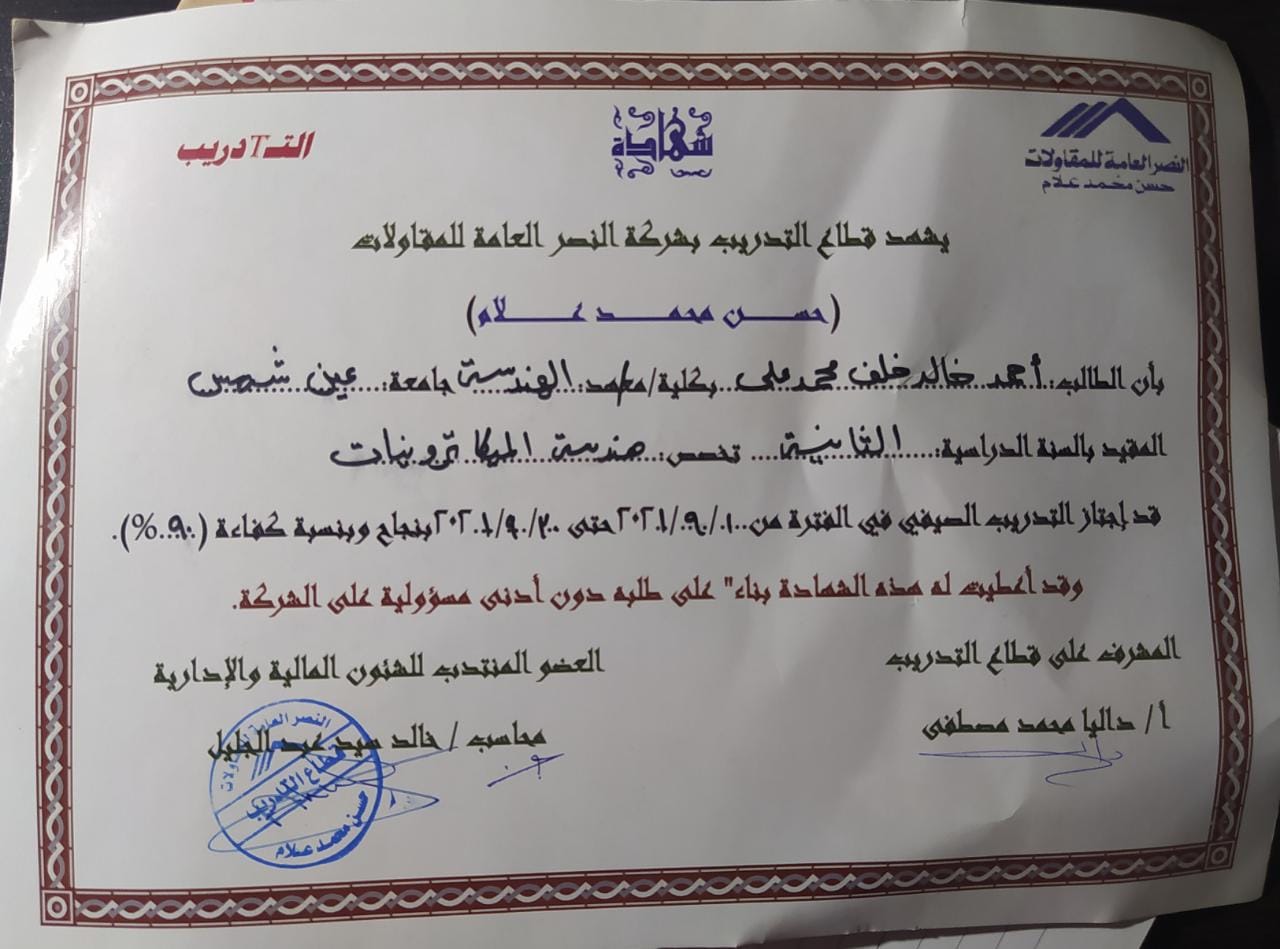 النصر العامة للمقاولات
حسن محمد علام
شهادة
التـTدريب
يشهد قطاع التدريب بشركة النصر العامة للمقاولات
(حســـن محمـــد عـــلام)
بأن الطالب: أحمد خالد خلف محمد على بكلية/معهد: الهندسة جامعة: عين شمس
المقيد بالسنة الدراسية: الثانية تخصص: هندسة الميكاترونيات
قد إجتاز التدريب الصيفي في الفترة من ٢٠٢١/٩/١ حتى ٢٠٢١/٩/٢٠ بنجاح وبنسبة كفاءة (٩٠%).
وقد أعطيت له هذه الشهادة بناء" على طلبه دون أدنى مسؤولية على الشركة.
المشرف على قطاع التدريب
العضو المنتدب للشئون المالية والإدارية
أ/ داليا محمد مصطفى
محاسب / خالد سيد عبد الجليل
النصر العامة للمقاولات
قطاع التدريب
حسن محمد علام